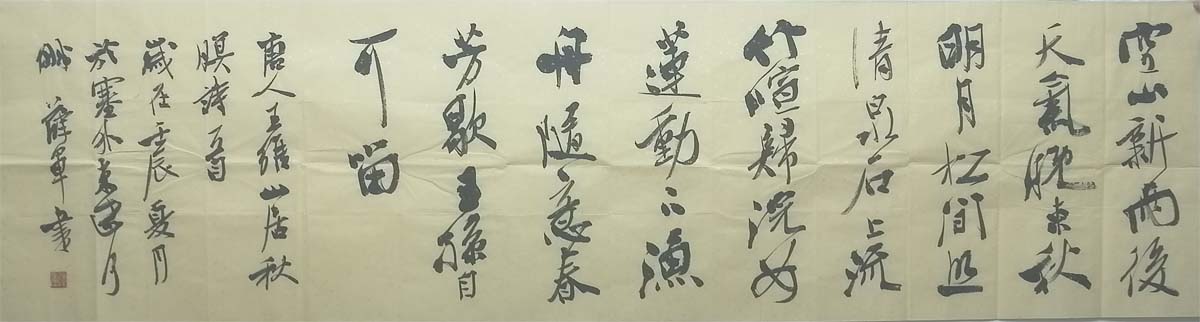 空山新雨後
天氣晚来秋
明月松間照
清泉石上流
竹喧歸浣女
蓮動下漁
舟隨意春
芳歇王孫自
可留
唐人王維山居秋
暝詩一首
歲在壬辰夏月
於塞外
薛軍書